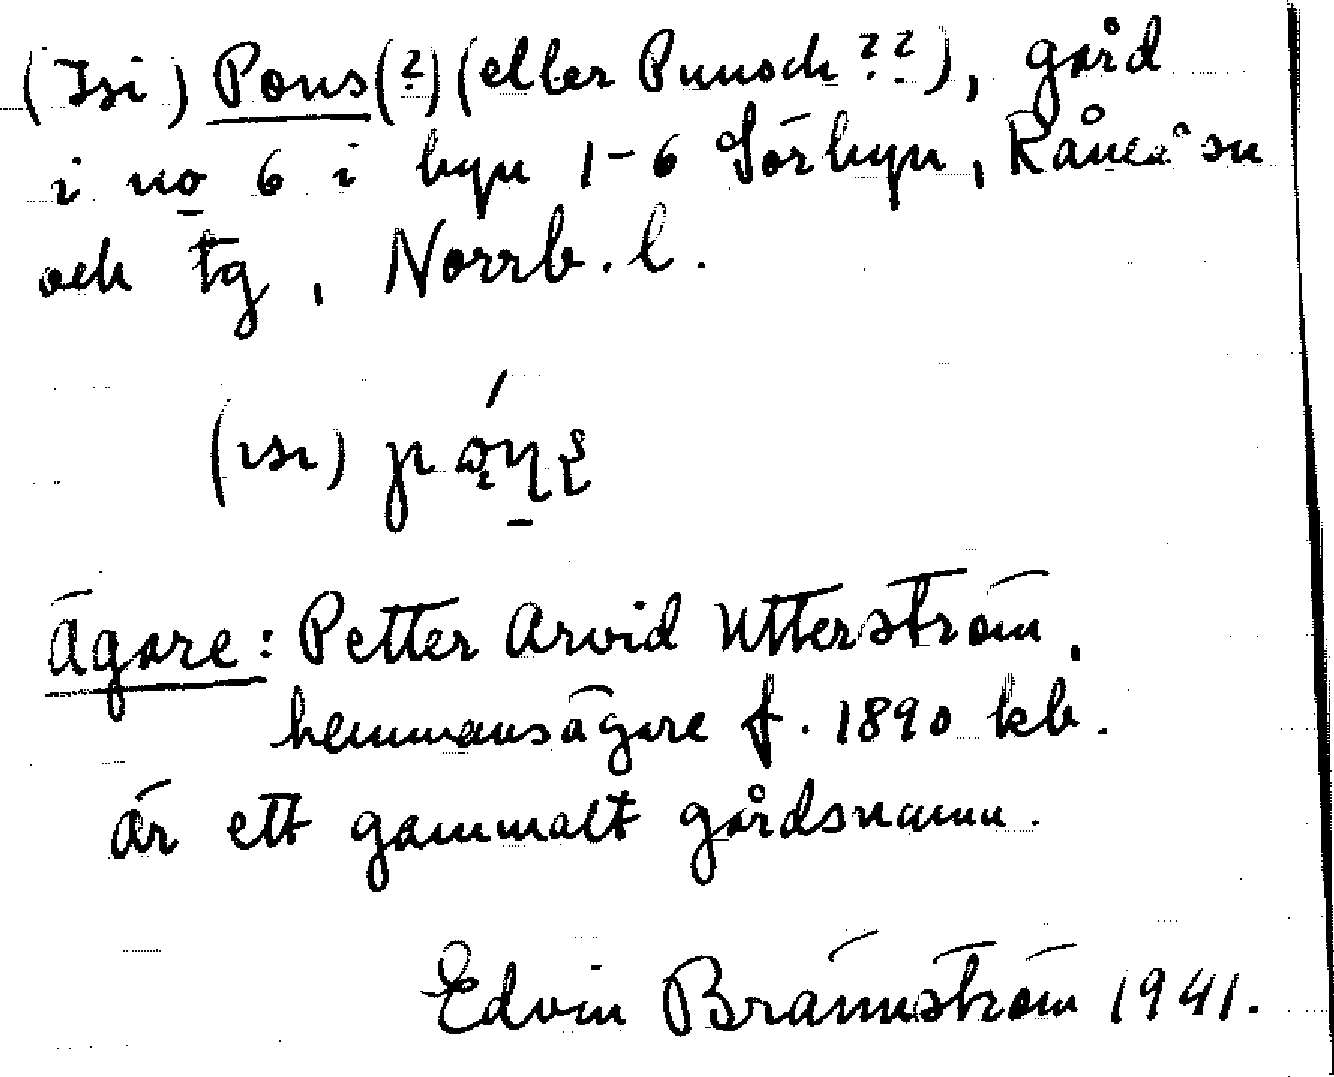 (Isi) Pons(?) (eller Punsch ??), gård
i no 6 i byn 1-6 Sörbyn, Råneå sn
och tg, Norrb. l.
(ısı)
Ägare: Petter Arvid Utterström,
hemmansägare f. 1890 kb.
är ett gammalt gårdsnamn.
Edvin Brännström 1941.